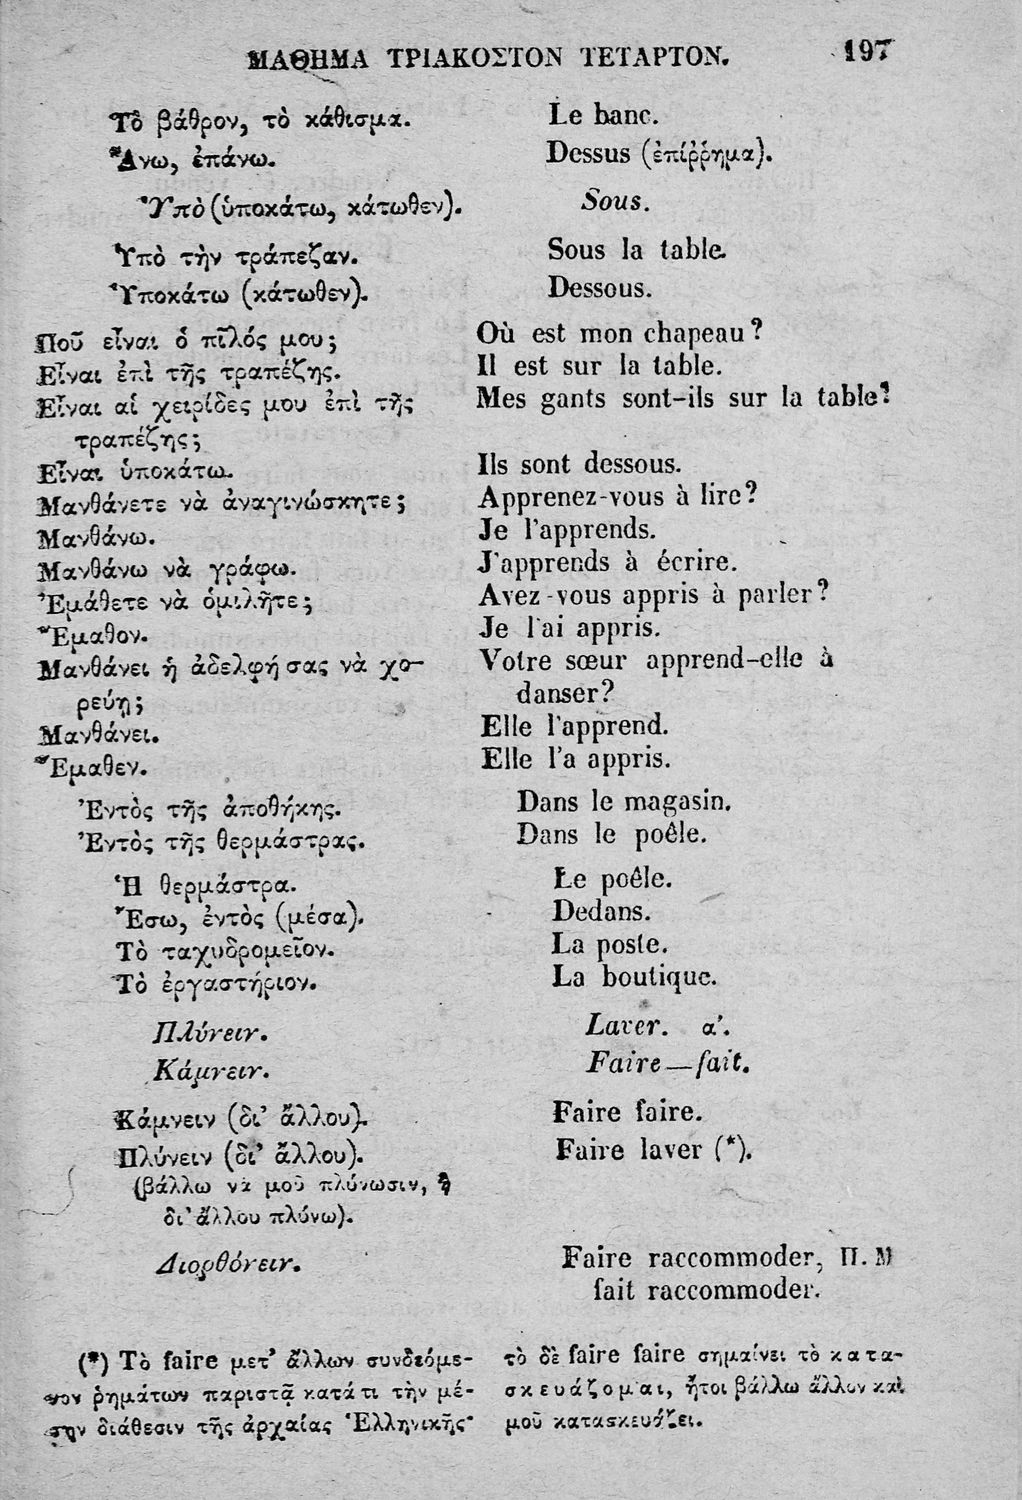 ΜΑΘΗΜΑ ΤΡΙΑΚΟΣΤΟΝ ΤΕΤΑΡΤΟΝ. 197
Τὸ βάθρον, τὸ κάθισμα. Le banc.
Ἄνω, ἐπάνω. Dessus (ἐπίῤῥημα).
Ὑπὸ (ὑποκάτω, κάτωθεν). Sous.
Ὑπὸ τὴν τράπεζαν. Sous la table.
Ὑποκάτω (κάτωθεν). Dessous.
Ποῦ εἶναι ὁ πῖλός μου; Où est mon chapeau?
Εἶναι ἐπὶ τῆς τραπέζης. Il est sur la table.
Εἶναι αἱ χειρίδες μου ἐπὶ τῆς Mes gants sont-ils sur la table?
τραπέζης;
Εἶναι ὑποκάτω. Ils sont dessous.
Μανθάνετε νὰ ἀναγινώσκητε; Apprenez-vous à lire?
Μανθάνω. Je l'apprends.
Μανθάνω νὰ γράφω. J'apprends à écrire.
Ἐμάθετε νὰ ὁμιλῆτε; Avez-vous appris à parler?
Ἔμαθον. Je l'ai appris.
Μανθάνει ἡ ἀδελφή σας νὰ χο- Votre sœur apprend-elle à
ρεύῃ; danser?
Μανθάνει. Elle l'apprend.
Ἔμαθεν. Elle l'a appris.
Ἐντὸς τῆς ἀποθήκης. Dans le magasin.
Ἐντὸς τῆς θερμάστρας. Dans le poêle.
Ἡ θερμάστρα. Le poêle.
Ἔσω, ἐντὸς (μέσα). Dedans.
Τὸ ταχυδρομεῖον. La poste.
Τὸ ἐργαστήριον. La boutique.
Πλύνειν. Laver. α'.
Κάμνειν. Faire—fait.
Κάμνειν (δι' ἄλλου). Faire faire.
Πλύνειν (δι' ἄλλου). Faire laver (*).
(βάλλω νὰ μοῦ πλύνωσιν, ἢ
δι' ἄλλου πλύνω).
Διορθόνειν. Faire raccommoder, Π. Μ
fait raccommoder.
(*) Τὸ faire μετ' ἄλλων συνδεόμε-
νον ῥημάτων παριστᾷ κατά τι τὴν μέ-
σην διάθεσιν τῆς ἀρχαίας Ἑλληνικῆς·
τὸ δὲ faire faire σημαίνει τὸ κατα-
σκευάζομαι, ἤτοι βάλλω ἄλλον καὶ
μοῦ κατασκευάζει.